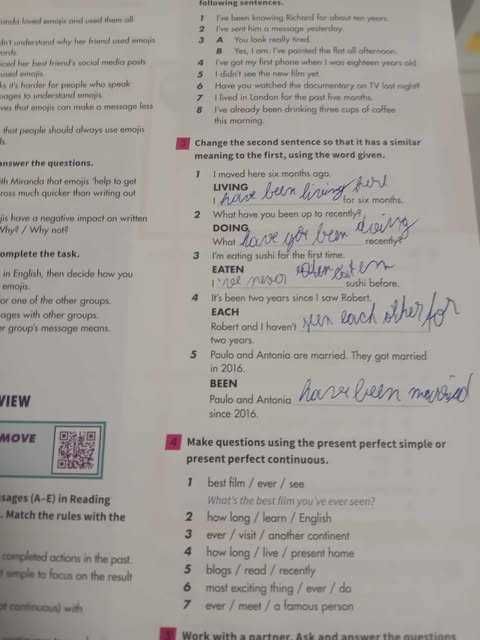 following sentences.
anda loved emojis and used them all
1 I've been knowing Richard for about ten years.
2 I've sent him a message yesterday.
dn't understand why her friend used emojis
3 A You look really tired.
B Yes, I am. I've painted the flat all afternoon.
iced her best friend's social media posts
used emojis.
4 I've got my first phone when I was eighteen years old.
5 I didn't see the new film yet.
ks it's harder for people who speak
uages to understand emojis.
6 Have you watched the documentary on TV last night?
7 I lived in London for the past five months.
ves that emojis can make a message less
8 I've already been drinking three cups of coffee
this morning.
that people should always use emojis
3 Change the second sentence so that it has a similar
meaning to the first, using the word given.
answer the questions.
1 I moved here six months ago.
LIVING
I have been living here for six months.
ith Miranda that emojis 'help to get
ross much quicker than writing out
2 What have you been up to recently?
DOING
What have you been doing recently?
jis have a negative impact on written
Why? / Why not?
3 I'm eating sushi for the first time.
EATEN
I 've never eaten sushi before.
omplete the task.
in English, then decide how you
emojis.
or one of the other groups.
ages with other groups.
er group's message means.
4 It's been two years since I saw Robert.
EACH
Robert and I haven't seen each other for
two years.
5 Paulo and Antonia are married. They got married
in 2016.
BEEN
Paulo and Antonia have been married
since 2016.
VIEW
MOVE
4 Make questions using the present perfect simple or
present perfect continuous.
1 best film / ever / see
What's the best film you've ever seen?
2 how long / learn / English
3 ever / visit / another continent
4 how long / live / present home
5 blogs / read / recently
6 most exciting thing / ever / do
7 ever / meet / a famous person
ssages (A–E) in Reading
. Match the rules with the
completed actions in the past.
t simple to focus on the result
ot continuous) with
5 Work with a partner. Ask and answer the questions